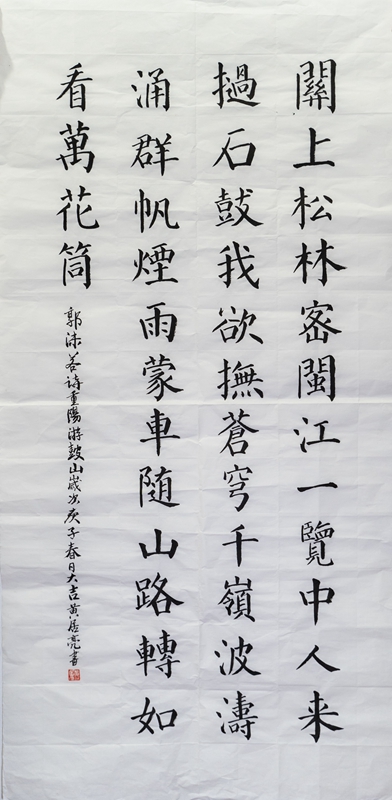 關上松林密閩江一覽中人来
撾石鼓我欲撫蒼穹千嶺波濤
涌群帆煙雨蒙車随山路轉如
看萬花筒
郭沫若诗重陽游鼓山歲次庚子春日大吉黄居亮書